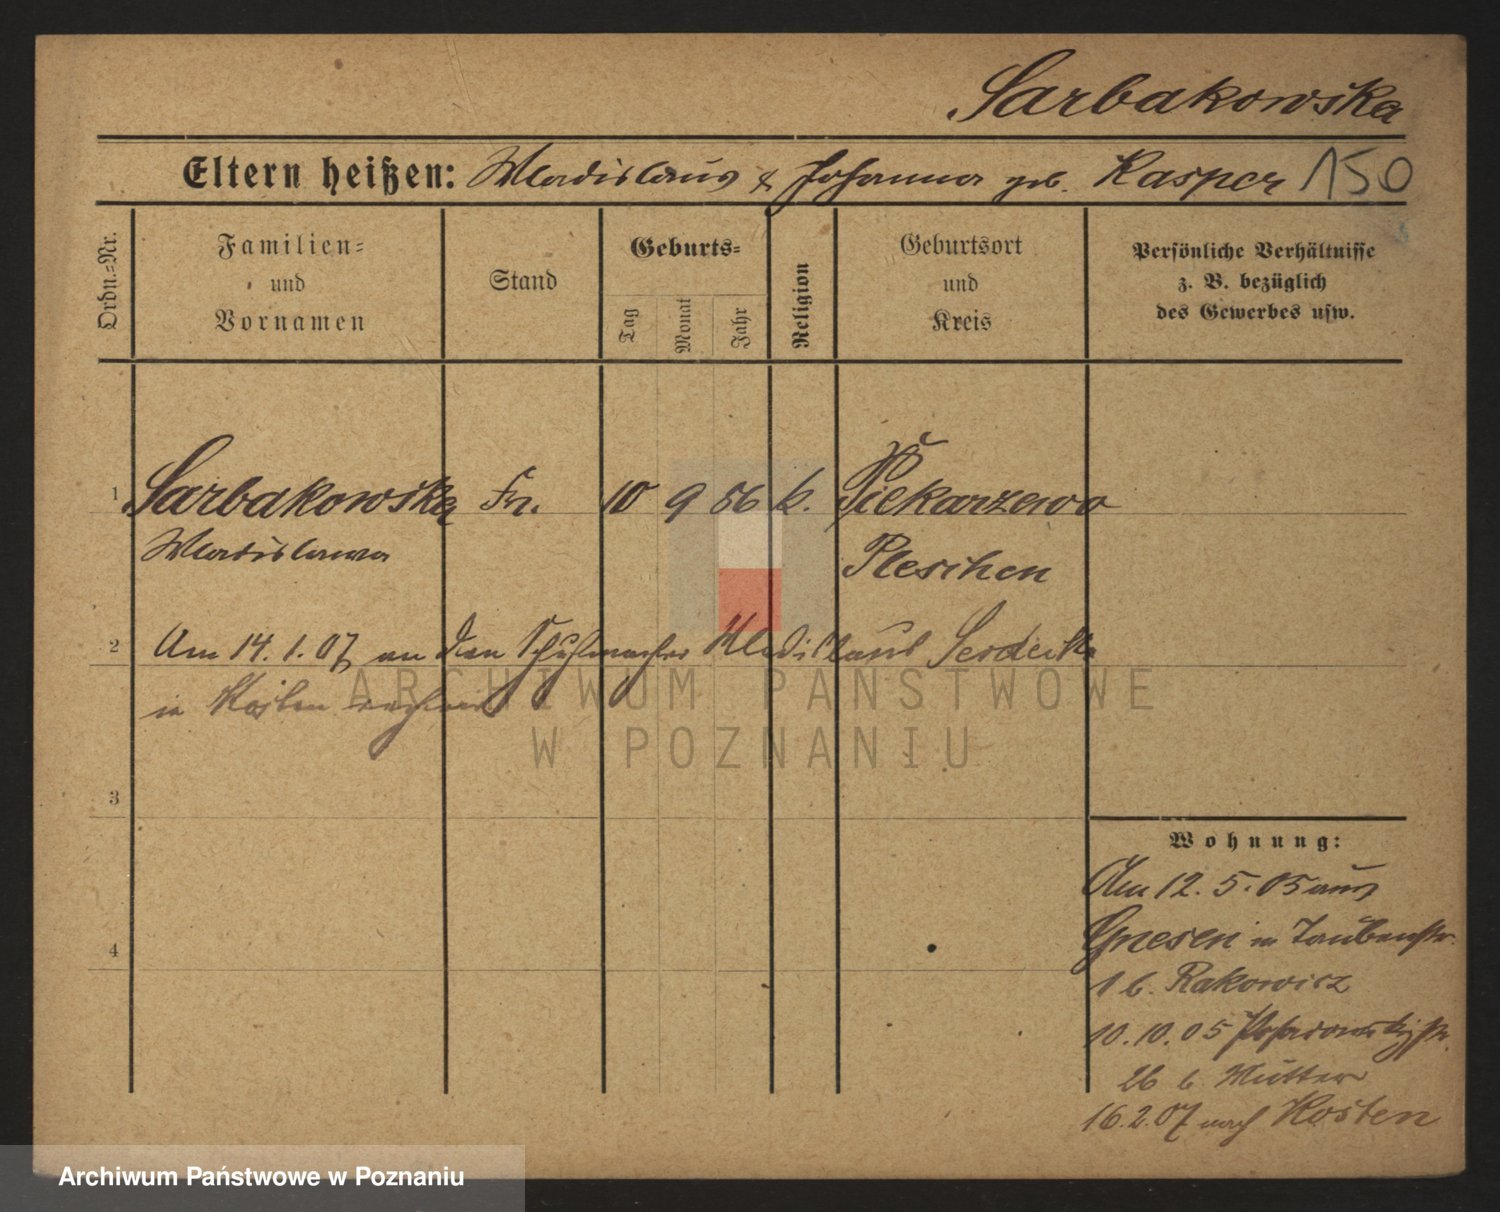 Sarbakowska
Eltern heißen: Wladislaus & Johanna geb. Kasper 150
Ordn.=Nr.
Familien=
und
Vornamen
Stand
Geburts=
Tag
Monat
Jahr
Religion
Geburtsort
und
Kreis
Persönliche Verhältnisse
z. B. bezüglich
des Gewerbes usw.
1 Sarbakowska Fr. 10 9 56 k. Piekarzewo
Wladislawa
Pleschen
2 Am 14. 1. 07 an den Schuhmacher Wladislaus
in Kosten
ARCHIWUM PAŃSTWOWE
W POZNANIU
3
Wohnung:
Am 12. 5. 05 aus
Gnesen in Taubenstr.
1 b. Rakowicz
4
10. 10. 05
26 b. Mutter
16. 2. 07 nach Kosten
Archiwum Państwowe w Poznaniu